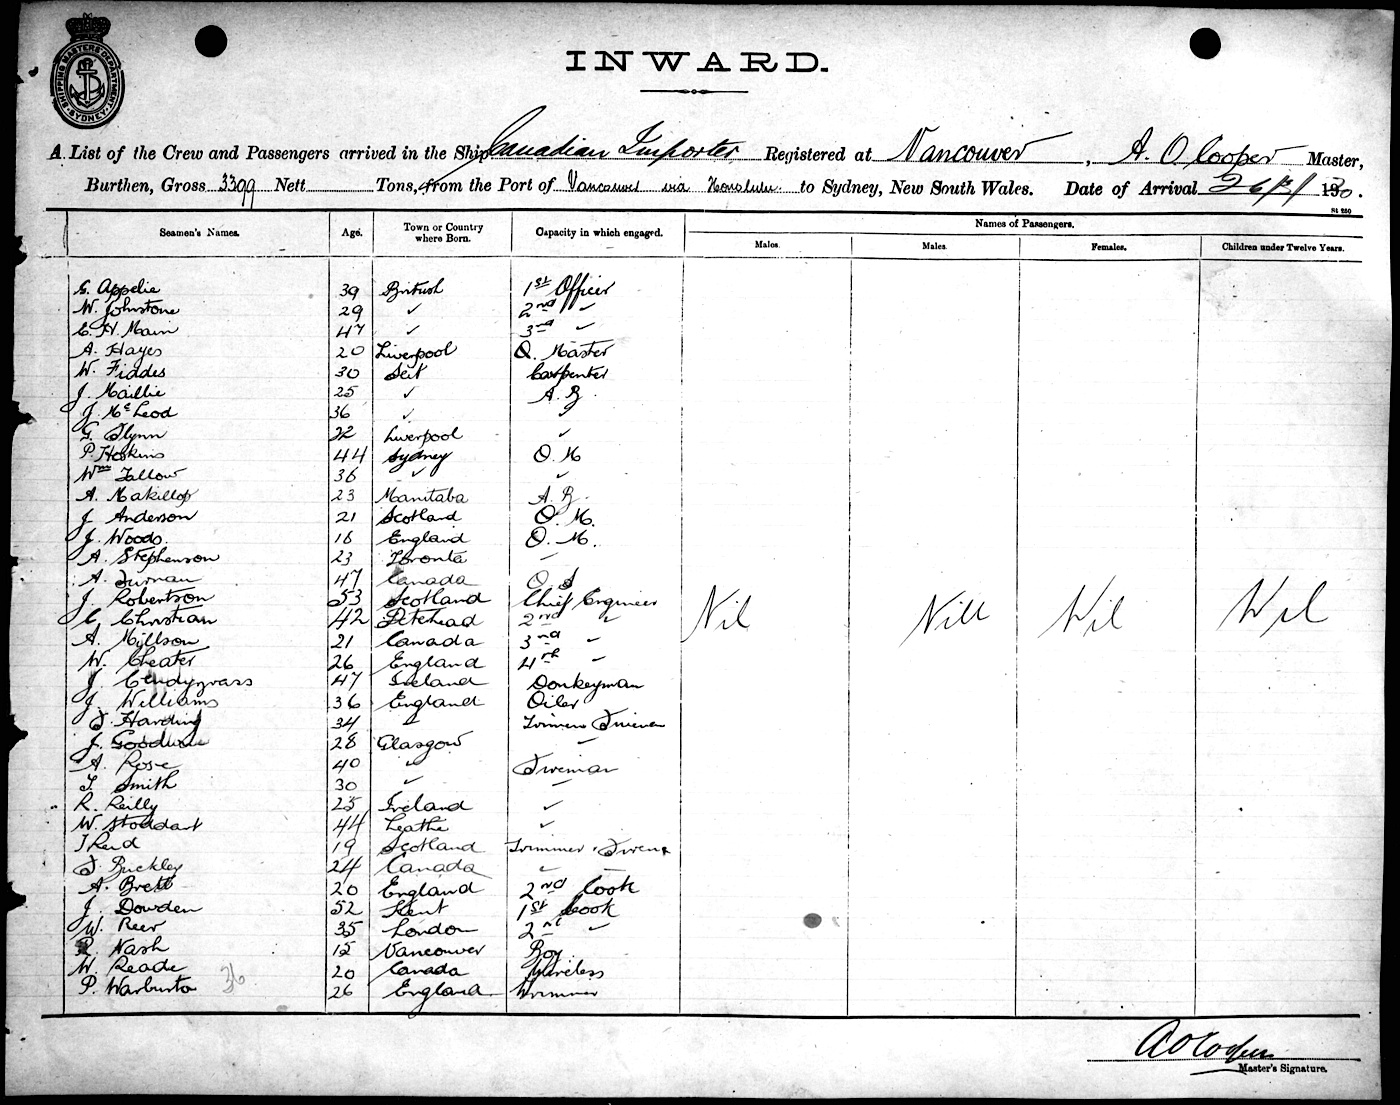 SHIPPING MASTERS DEPARTMENT SYDNEY
INWARD.
A List of the Crew and Passengers arrived in the Ship Canadian Importer Registered at Vancouver, A. O Cooper Master,
Burthen, Gross 3399 Nett Tons, from the Port of Vancouver via Honolulu to Sydney, New South Wales. Date of Arrival
St 250
Seamen's Names. Age. Town or Country where Born. Capacity in which engaged. Names of Passengers.
Males. Males. Females. Children under Twelve Years.
G. Appelie 39 British 1st Officer
W. Johnstone 29 ✓ 2nd ✓
C. H. Main 47 ✓ 3rd ✓
A. Hayes 20 Liverpool Q. Master
W. Fiddes 30 Carpenter
J. Maillie 25 ✓ A. B.
J. McLeod 36 ✓ ✓
G. Flynn 32 Liverpool ✓
P. Hoskins 44 Sydney O. M
Wm Tallow 36 ✓ ✓
A. Makillop 23 Manitaba A. B.
J Anderson 21 Scotland Q. M.
J. Woods. 18 England Q. M.
A. Stephenson 23 Toronta
A. 47 Canada O S
J. Robertson 53 Scotland Chief Engineer
C. Christian 42 2nd "
A. Millson 21 Canada 3rd "
Nil Nill Nil Nil
W. Cheater 26 England 4th "
J. 47 Ireland Donkeyman
J. Williams 36 England Oiler
J. Harding 34 "
J. 28 Glasgow
A. Rose 40 ✓ Fireman
T. Smith 30 ✓
R. Reilly 25 Ireland ✓
W. Stoddart 44 ✓
J Reid 19 Scotland Trimmer
J. Buckley 24 Canada ✓
A. Brett 20 England 2nd Cook
J. Dowden 52 Kent 1st Cook
W. 35 London 2nd ✓
R. Nash 15 Vancouver Boy
W. Reade 20 Canada Wireless
P. Warburto 36 26 England Trimmer
A O Cooper
Master's Signature.